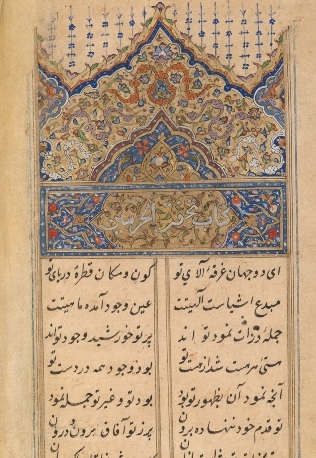 کتاب الحرمین
ای دو جهان غرقهٔ آلای تو کون و مکان قطرهٔ دریای تو
مبدع اشیاست الهیتت عین وجود آمده ماهیتت
جمله ذرات نمود تو اند پرتو خورشید وجود تواند
هستی هر هست شد از هست تو بود و وجود همه در دست تو
آنچه نمود آن بظهور تو بود بود تو و غیر تو جمله نمود
تو قدم خود ننهاده برون پر ز تو آفاق برون و درون